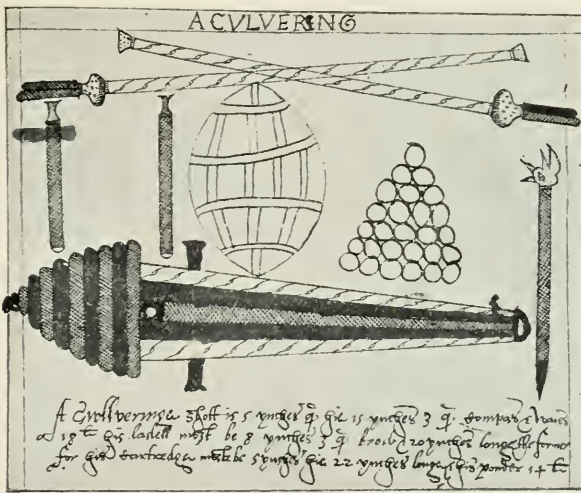 A CVLVERING
A Cullveringe Shott is 5 ynches q. hie 15 ynches 3 q. Compas & waies
18 ℔ his ladell must be 8 ynches 3 q. broad 20 ynches longe the former
for his Cartredge must be 5 ynches hie 22 ynches longe his powder 14 ℔